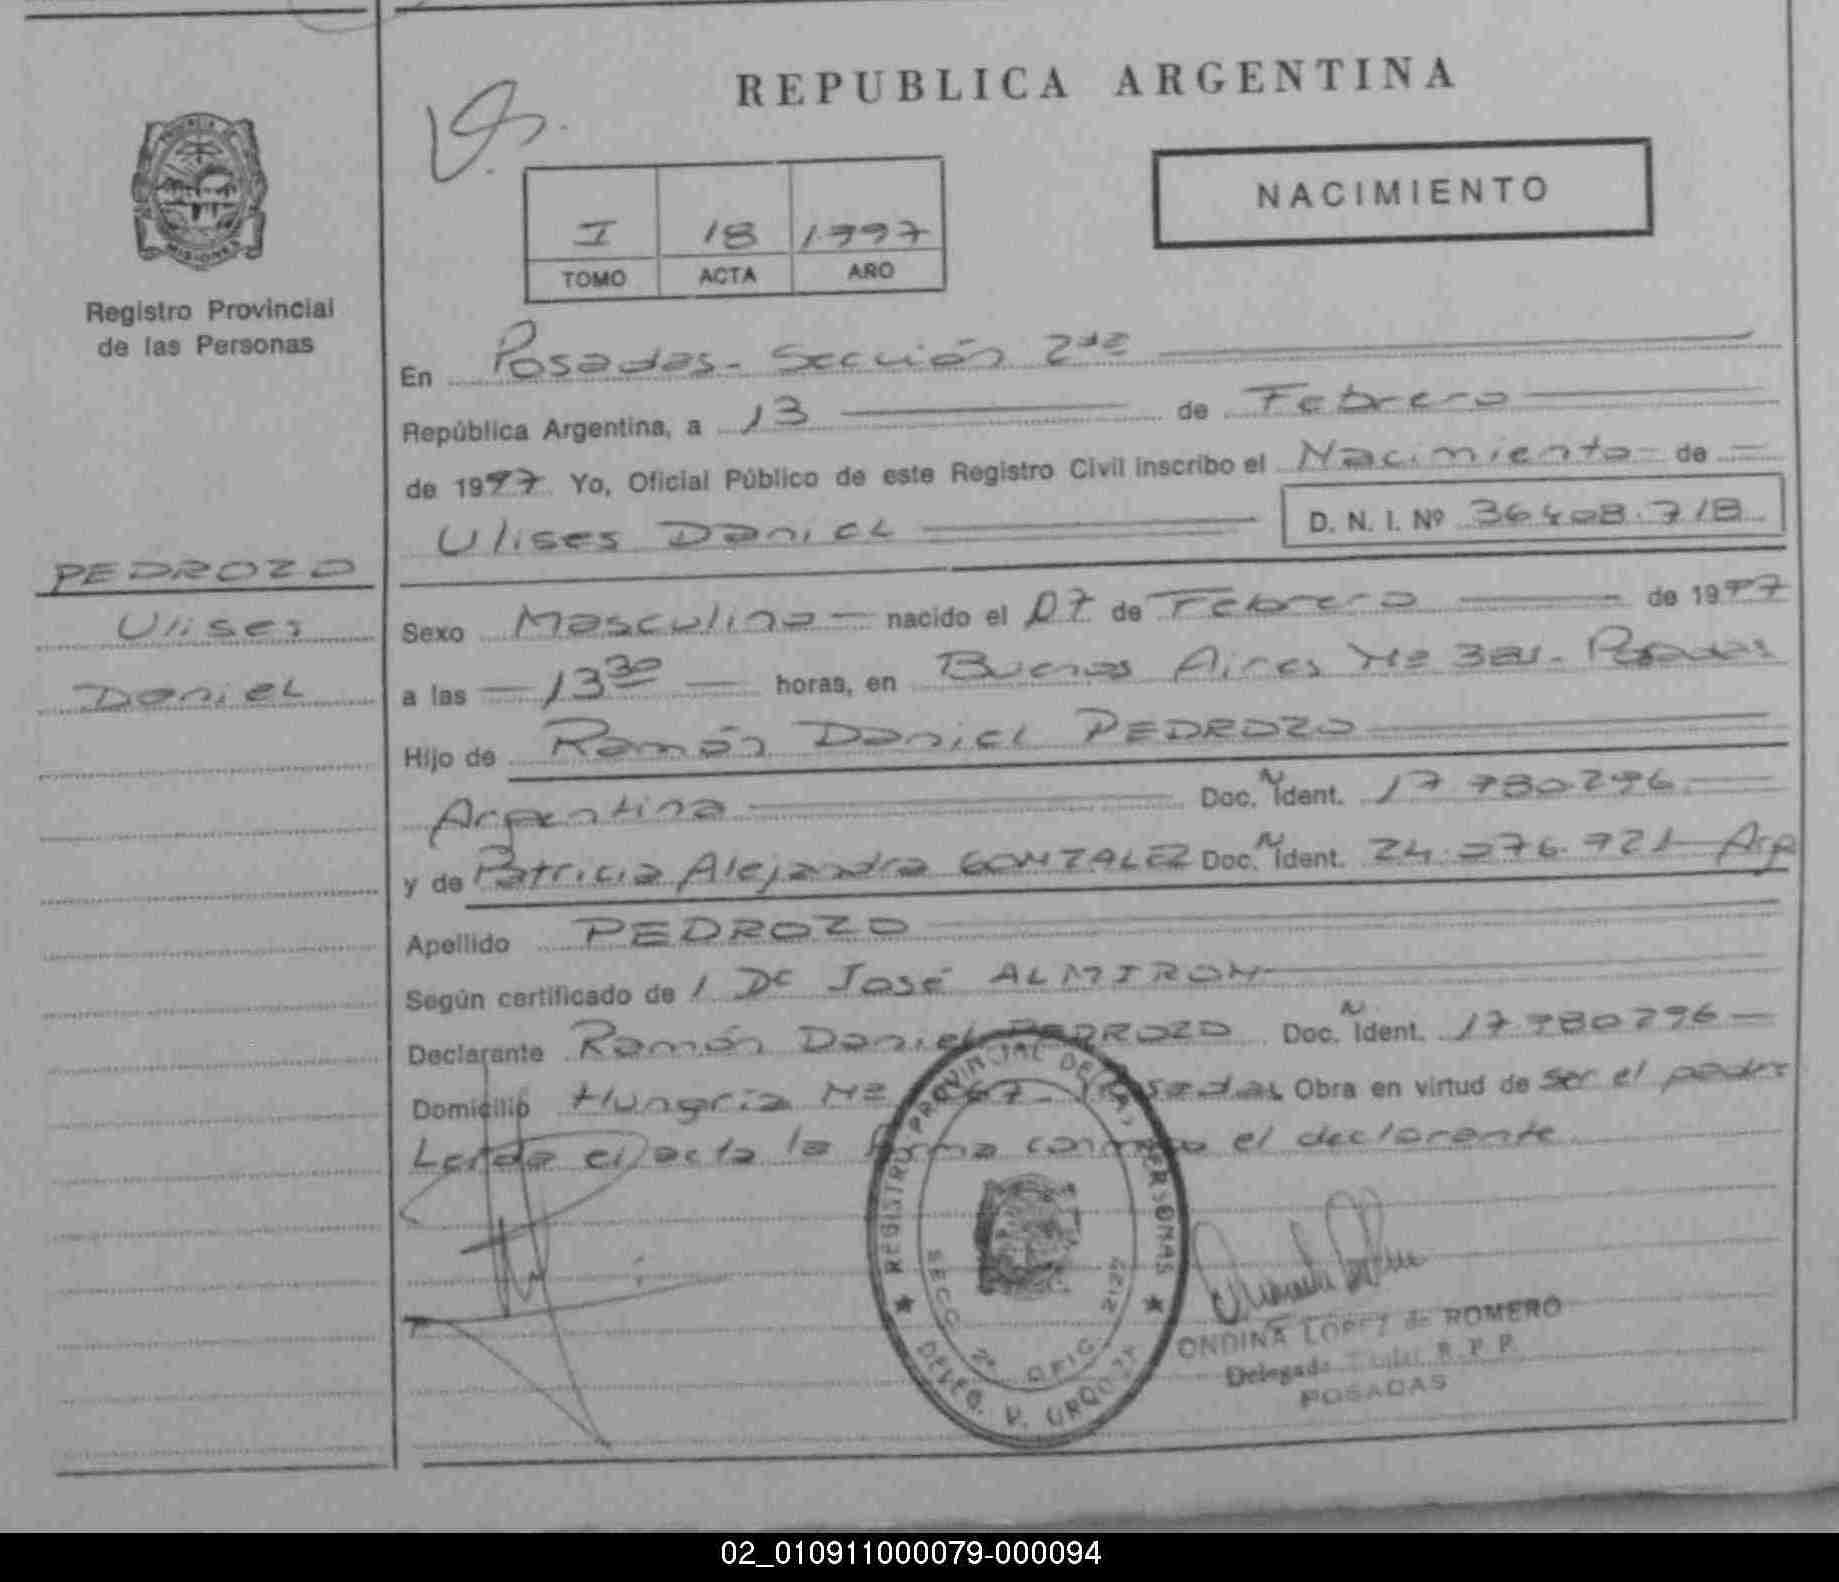 REPUBLICA ARGENTINA
NACIMIENTO
I 18 1997
TOMO ACTA AÑO
PROVINCIA DE
MISIONES
Registro Provincial
de las Personas
PEDROZO
Ulises
Daniel
En Posadas - Sección 2da
República Argentina, a 13 de Febrero
de 1997 Yo, Oficial Público de este Registro Civil inscribo el Nacimiento de
Ulises Daniel D. N. I. Nº 36.408.718
Sexo Masculino nacido el 07 de Febrero de 1997
a las 13 30 horas, en Buenos Aires Nº Posadas
Hijo de Ramón Daniel PEDROZO
Argentina Doc. Ident.
y de Patricia Alejandra GONZALEZ Doc. Ident. Arg
Apellido PEDROZO
Según certificado de 1 Dr José ALMIRON
Declarante Ramón Daniel PEDROZO Doc. Ident.
Domicilio Hungría Nº Posadas Obra en virtud de ser el padre
Leída el acta la firma conmigo el declarante
REGISTRO PROVINCIAL DE LAS PERSONAS
SECC. 2ª OFIC.
ONDINA LOPEZ de ROMERO
Delegada Titular R. P. P.
POSADAS
02_010911000079-000094